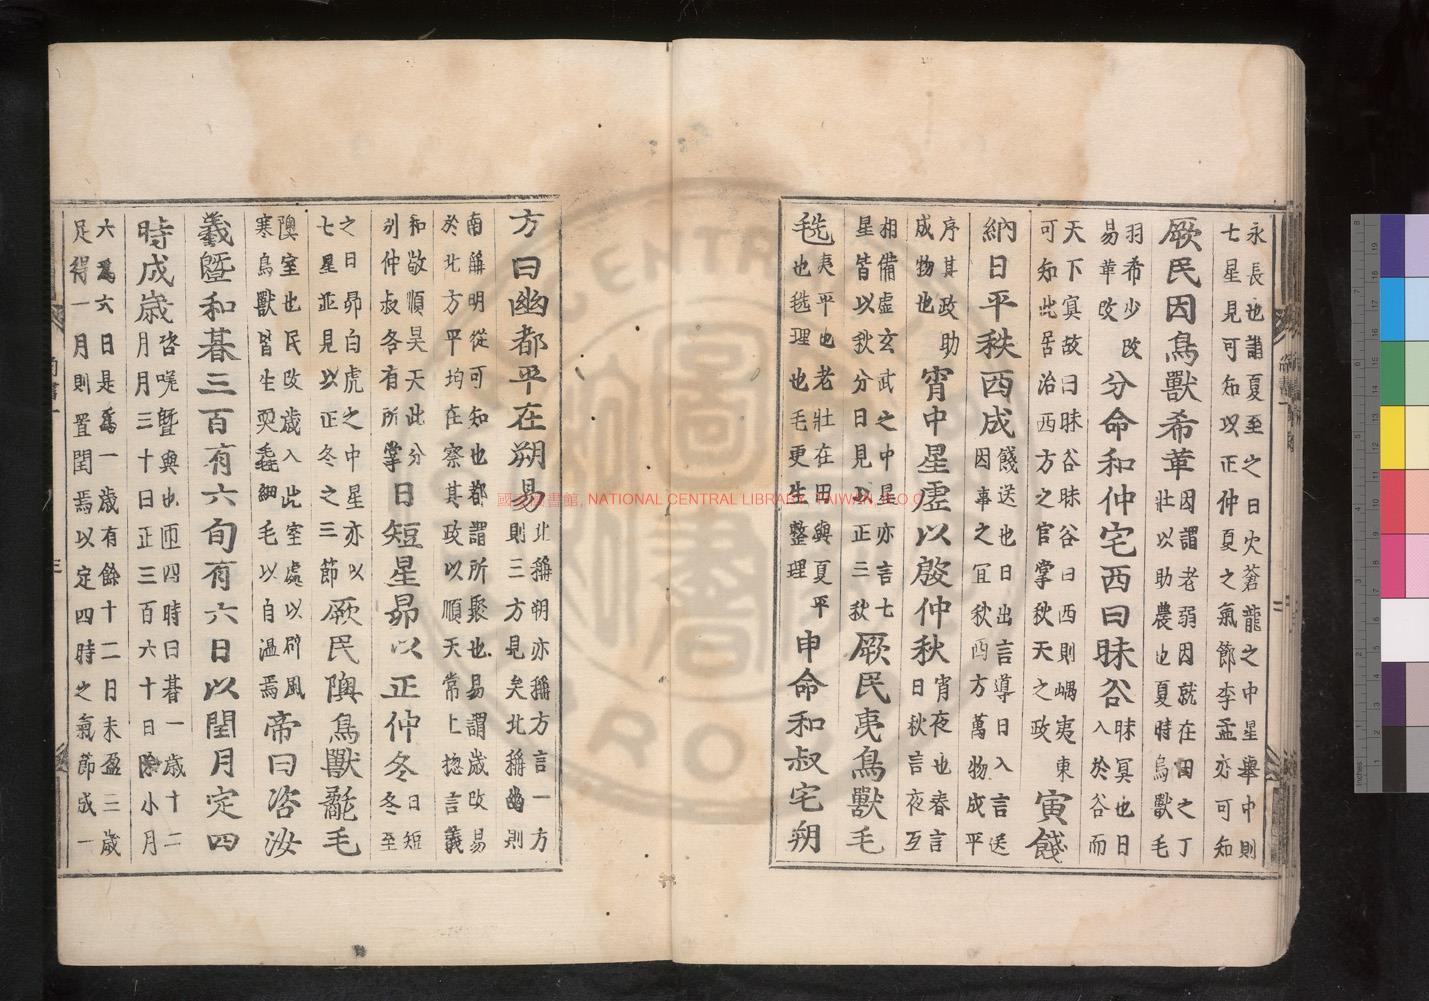 永長也謂夏至之日火蒼龍之中星舉中則
七星見可知以正仲夏之氣節李孟亦可知
厥民因鳥獸希革因謂老弱因就在田之丁
壯以助農也夏時鳥獸毛
羽希少改
易革改
分命和仲宅西曰昧谷昧冥也日
入於谷而
天下冥故曰昧谷昧谷曰西則嵎夷東
可知此居治西方之官掌秋天之政
寅餞
納日平秩西成餞送也日出言導日入言送
因事之宜秋西方萬物成平
序其政助
成物也
宵中星虛以殷仲秋宵夜也春言
日秋言夜互
相備虛玄武之中星亦言七
星皆以秋分日見以正三秋
厥民夷鳥獸毛
毨夷平也老壯在田與夏平
也毨理也毛更生整理
申命和叔宅朔
方曰幽都平在朔易北稱朔亦稱方言一方
則三方見矣北稱幽則
南稱明從可知也都謂所聚也易謂歲改易
於北方平均在察其政以順天常上惚言羲
和敬順昊天此分
別仲叔各有所掌
日短星昴以正仲冬日短
冬至
之日昴白虎之中星亦以
七星並見以正冬之三節
厥民隩鳥獸氄毛
隩室也民改歲入此室處以辟風
寒鳥獸皆生耎毳細毛以自溫焉
帝曰咨汝
羲曁和朞三百有六旬有六日以閏月定四
時成歲咨嗟曁與也匝四時曰朞一歲十二
月月三十日正三百六十日除小月
六爲六日是爲一歲有餘十二日未盈三歲
足得一月則置閏焉以定四時之氣節成一
國家圖書館, NATIONAL CENTRAL LIBRARY, TAIWAN, R.O.C